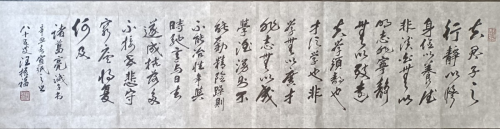 夫君子之
行静以修
身俭以養德
非淡泊無以
明志非寧靜
無以致遠
夫學須静也
才須學也非
學無以廣才
非志無以成
學淫漫則不
能勵精險躁則
不能治性年與
時馳意与日去
遂成枯落多
不接世悲守
窮廬將復
何及
諸葛亮誡子書
八十五叟汪